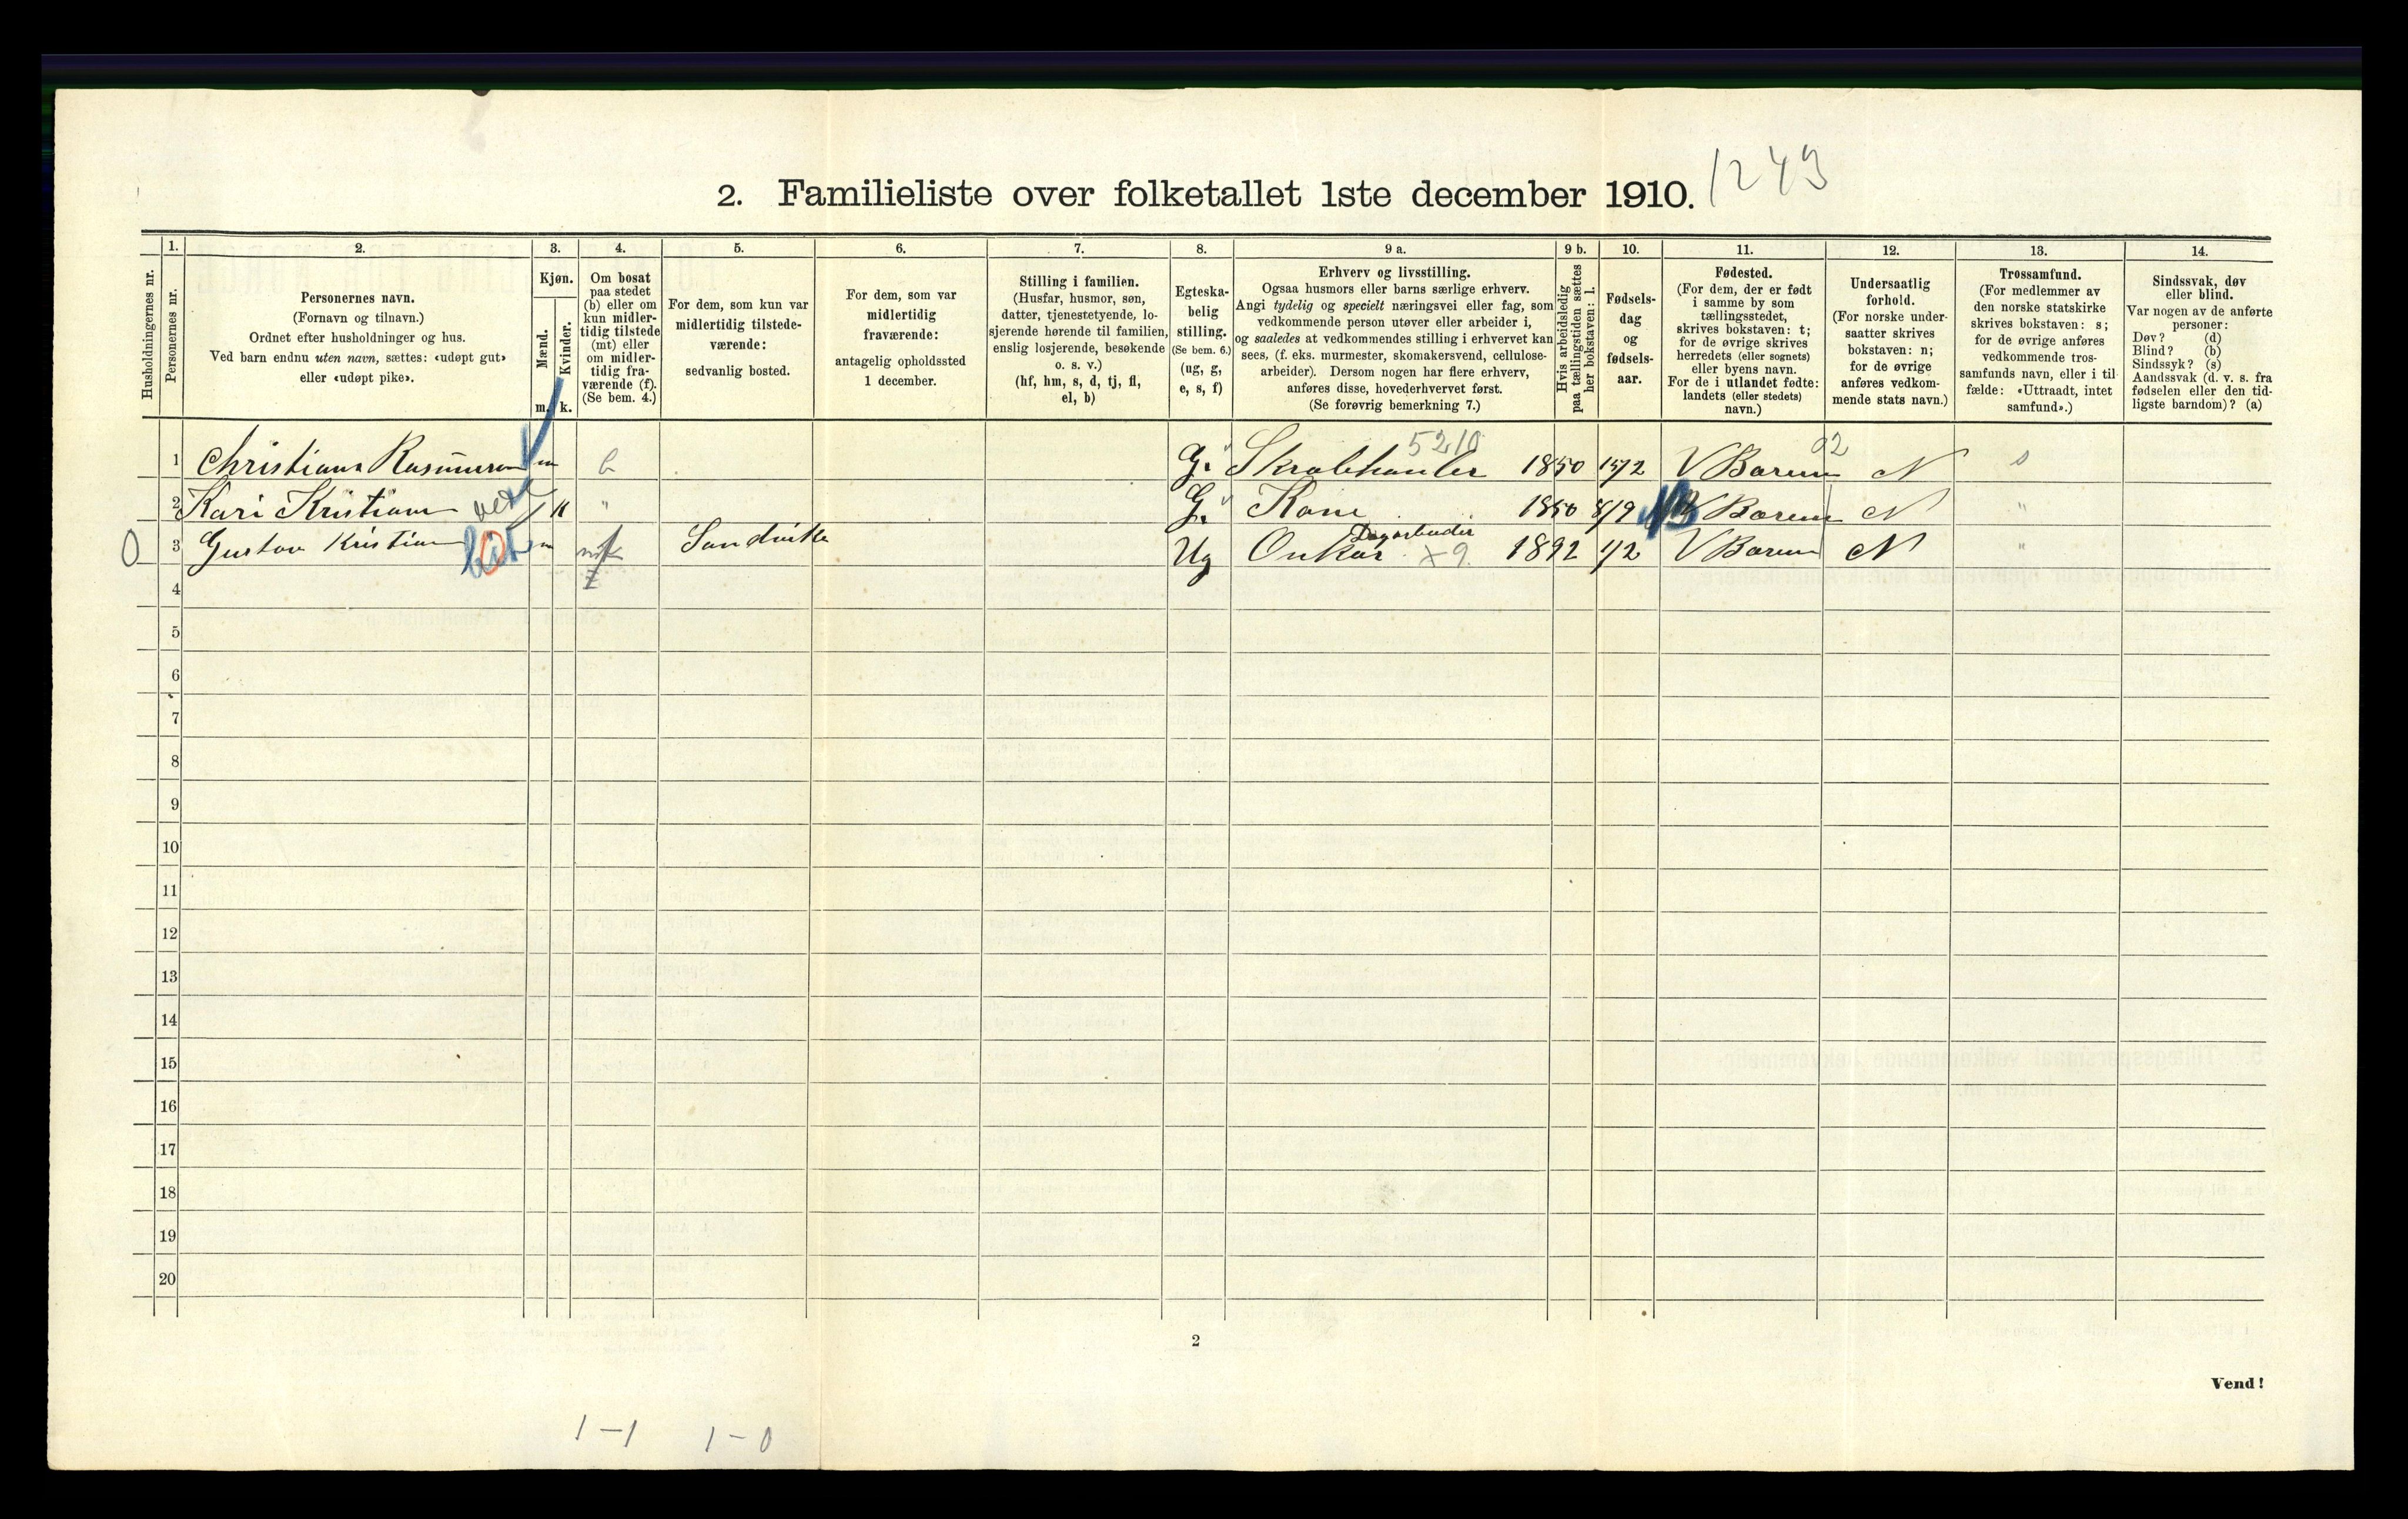 2. Familieliste over folketallet 1ste december 1910. 1243
Husholdningernes nr.
1.
Personernes nr.
2.
Personernes navn.
(Fornavn og tilnavn.)
Ordnet efter husholdninger og hus.
Ved barn endnu uten navn, sættes: «udøpt gut»
eller «udøpt pike».
3.
Kjøn.
Mænd.
Kvinder.
m. k.
4.
Om bosat
paa stedet
(b) eller om
kun midler-
tidig tilstede
(mt) eller
om midler-
tidig fra-
værende (f).
(Se bem. 4.)
5.
For dem, som kun var
midlertidig tilstede-
værende:
sedvanlig bosted.
6.
For dem, som var
midlertidig
fraværende:
antagelig opholdssted
1 december.
7.
Stilling i familien.
(Husfar, husmor, søn,
datter, tjenestetyende, lo-
sjerende hørende til familien,
enslig losjerende, besøkende
o. s. v.)
(hf, hm, s, d, tj, fl,
el, b)
8.
Egteska-
belig
stilling.
(Se bem. 6.)
(ug, g,
e, s, f)
9 a.
Erhverv og livsstilling.
Ogsaa husmors eller barns særlige erhverv.
Angi tydelig og specielt næringsvei eller fag, som
vedkommende person utøver eller arbeider i,
og saaledes at vedkommendes stilling i erhvervet kan
sees, (f. eks. murmester, skomakersvend, cellulose-
arbeider). Dersom nogen har flere erhverv,
anføres disse, hovederhvervet først.
(Se forøvrig bemerkning 7.)
9 b.
Hvis arbeidsledig
paa tællingstiden sættes
her bokstaven: l.
10.
Fødsels-
dag
og
fødsels-
aar.
11.
Fødested.
(For dem, der er født
i samme by som
tællingsstedet,
skrives bokstaven: t;
for de øvrige skrives
herredets (eller sognets)
eller byens navn.
For de i utlandet fødte:
landets (eller stedets)
navn.)
12.
Undersaatlig
forhold.
(For norske under-
saatter skrives
bokstaven: n;
for de øvrige
anføres vedkom-
mende stats navn.)
13.
Trossamfund.
(For medlemmer av
den norske statskirke
skrives bokstaven: s;
for de øvrige anføres
vedkommende tros-
samfunds navn, eller i til-
fælde: «Uttraadt, intet
samfund».)
14.
Sindssvak, døv
eller blind.
Var nogen av de anførte
personer:
Døv? (d)
Blind? (b)
Sindssyk? (s)
Aandssvak (d. v. s. fra
fødselen eller den tid-
ligste barndom)? (a)
5210 02
1 Christians Rasmusen m b G. Skrabhanler 1850 15/2 V Bærum N s
2 Kari Kristians k " G. Kone 1850 8/9 V Bærum N "
Dagarbeider
0 3 Gustav Kristian m Sandvika Ug Onkar x9 1892 1/2 V Bærum N "
4
5
6
7
8
9
10
11
12
13
14
15
16
17
18
19
20
2
Vend!
1-1 1-0